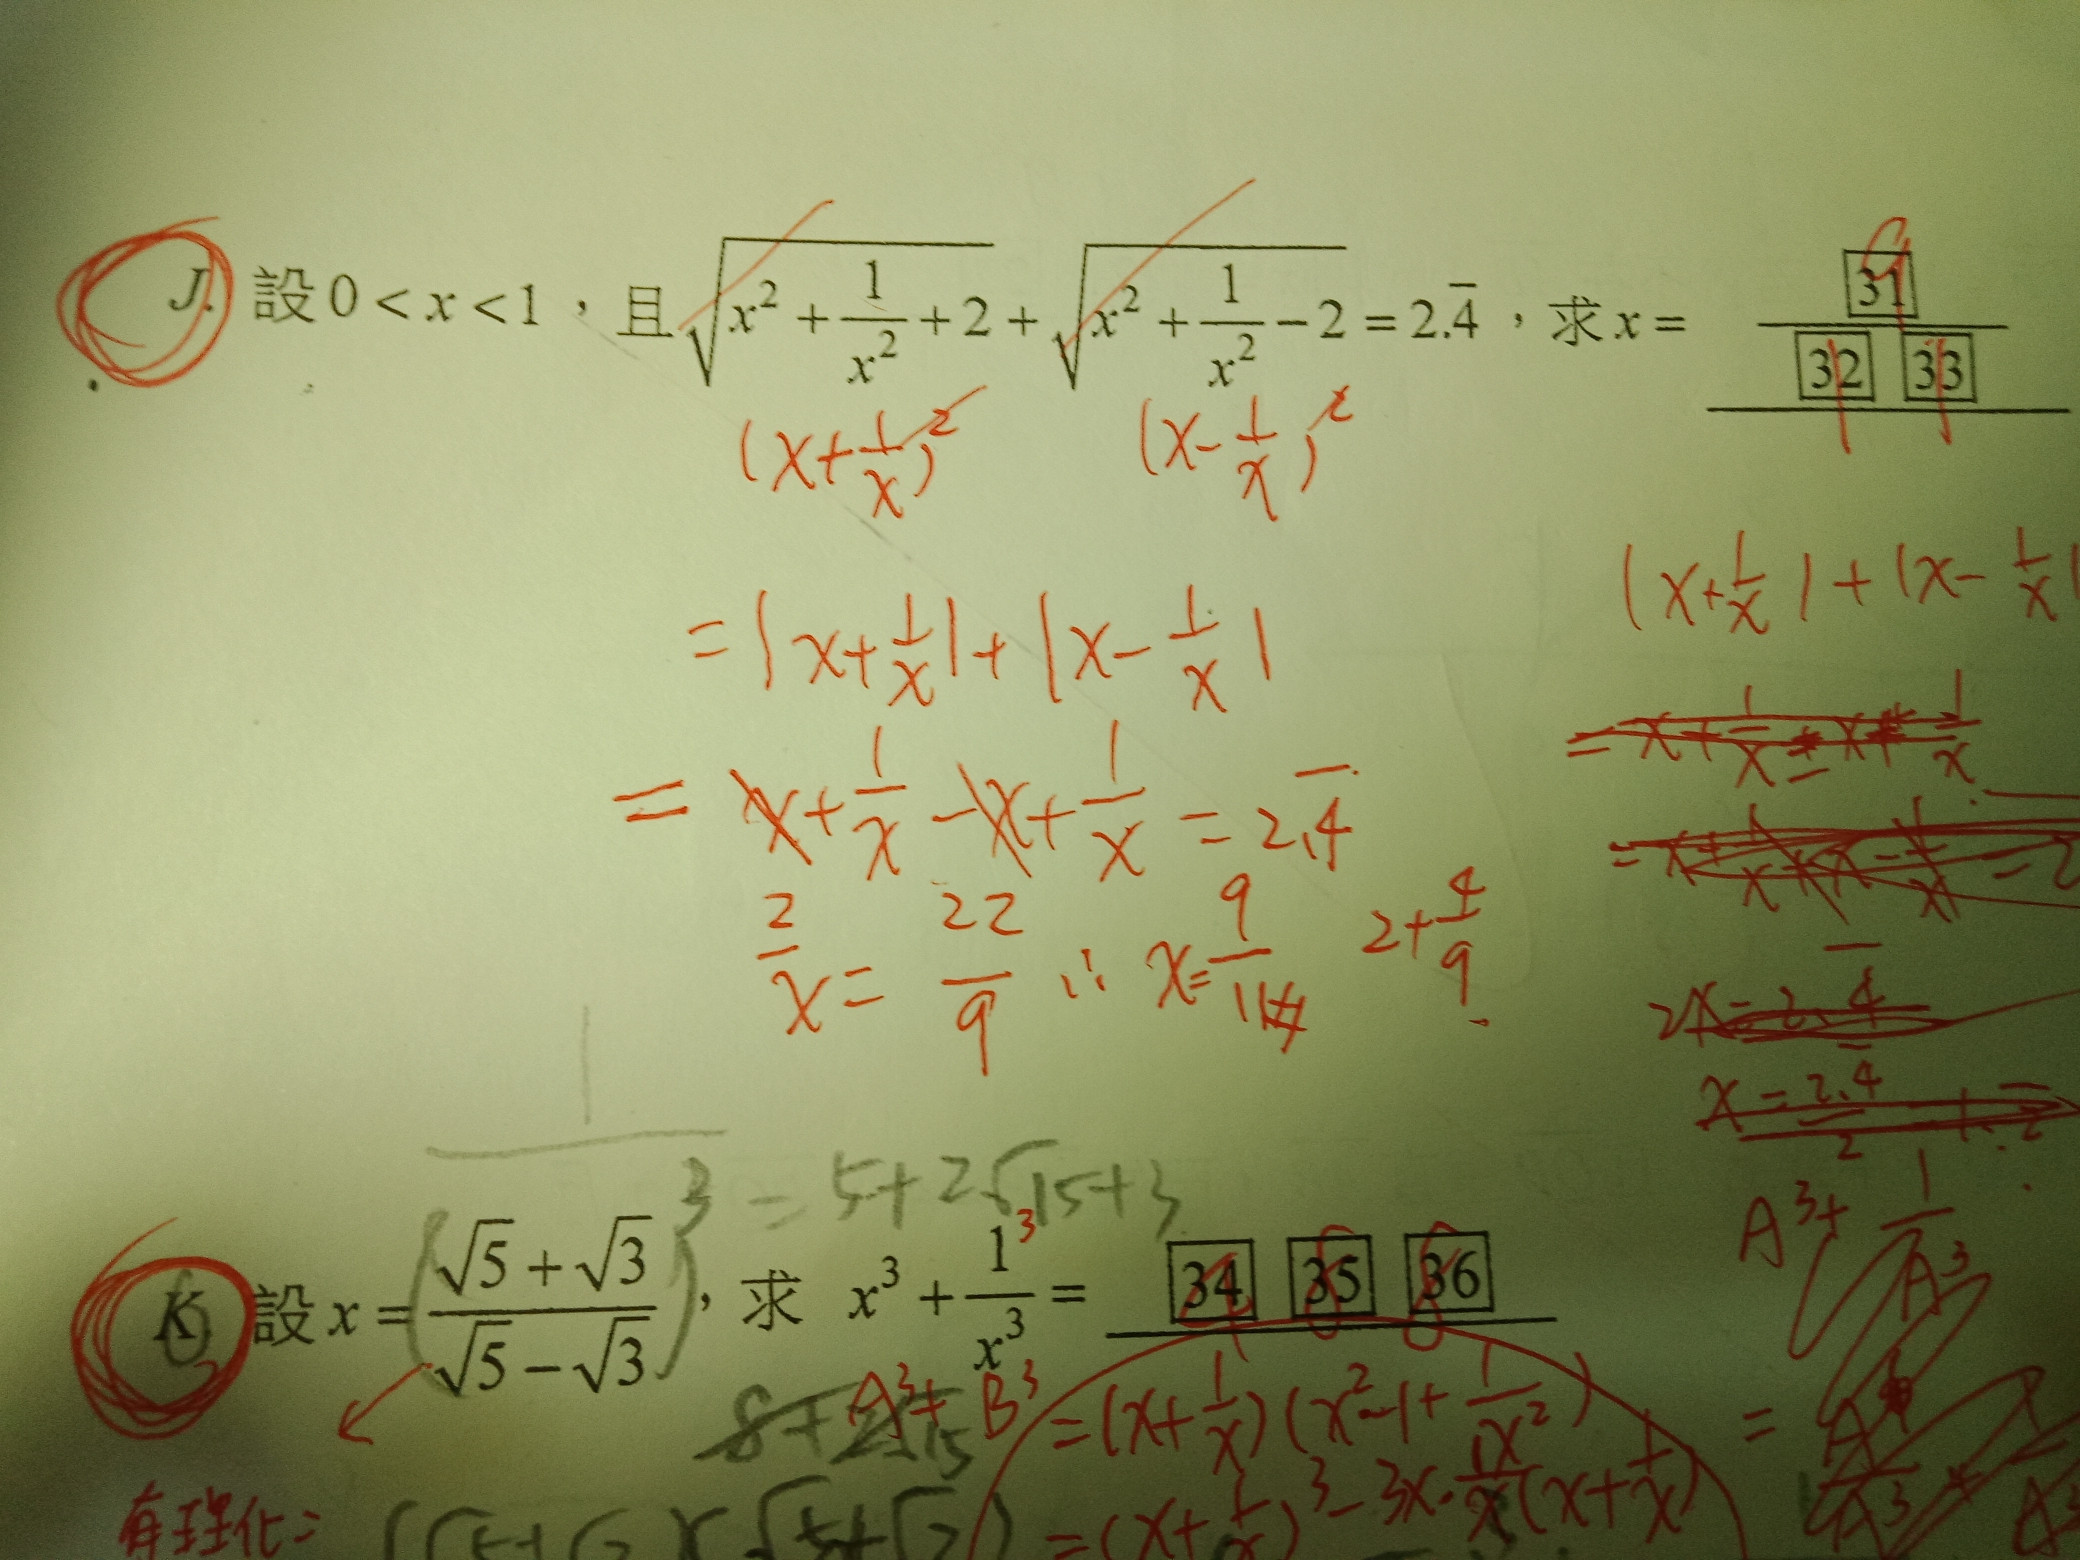 J. 設 0 < x < 1，且 √(x² + 1/x² + 2) + √(x² + 1/x² − 2) = 2.4̅，求 x = 31/32 33
9
1 1
(x + 1/x)² (x − 1/x)²
= |x + 1/x| + |x − 1/x|
= x + 1/x − x + 1/x = 2.4̅
2/x = 22/9 ∴ x = 9/11
2 + 4/9
|x + 1/x| + |x − 1/x|
2x = 2.4̅
x = 2.4̅/2
A³ + 1/A³
³ = 5 + 2√15 + 3
K. 設 x = (√5 + √3)/(√5 − √3)，求 x³ + 1³/x³ = 34 35 36
8 + 2√15
A³ + B³ = (x + 1/x)(x² − 1 + 1/x²)
= (x + 1/x)³ − 3x · 1/x (x + 1/x)
有理化: